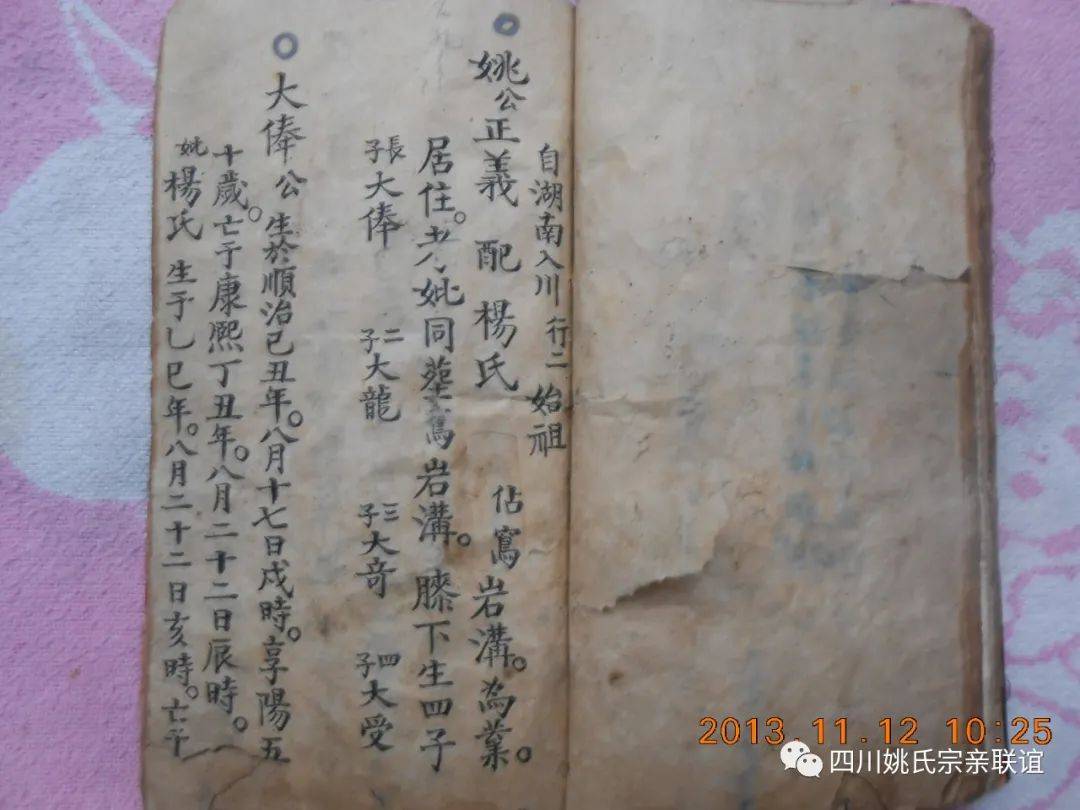 自湖南入川 行二 始祖
姚公正義 配楊氏 佔寫岩溝。為業。
居住。考妣同葬寫岩溝。膝下生四子
長子大俸 二子大龍 三子大奇 四子大受
大俸公 生於順治己丑年。八月十七日戌時。享陽五
十歲。亡于康熙丁丑年。八月二十二日辰時。
妣楊氏 生于乙巳年。八月二十二日亥時。亡于
2013.11.12 10:25
四川姚氏宗亲联谊